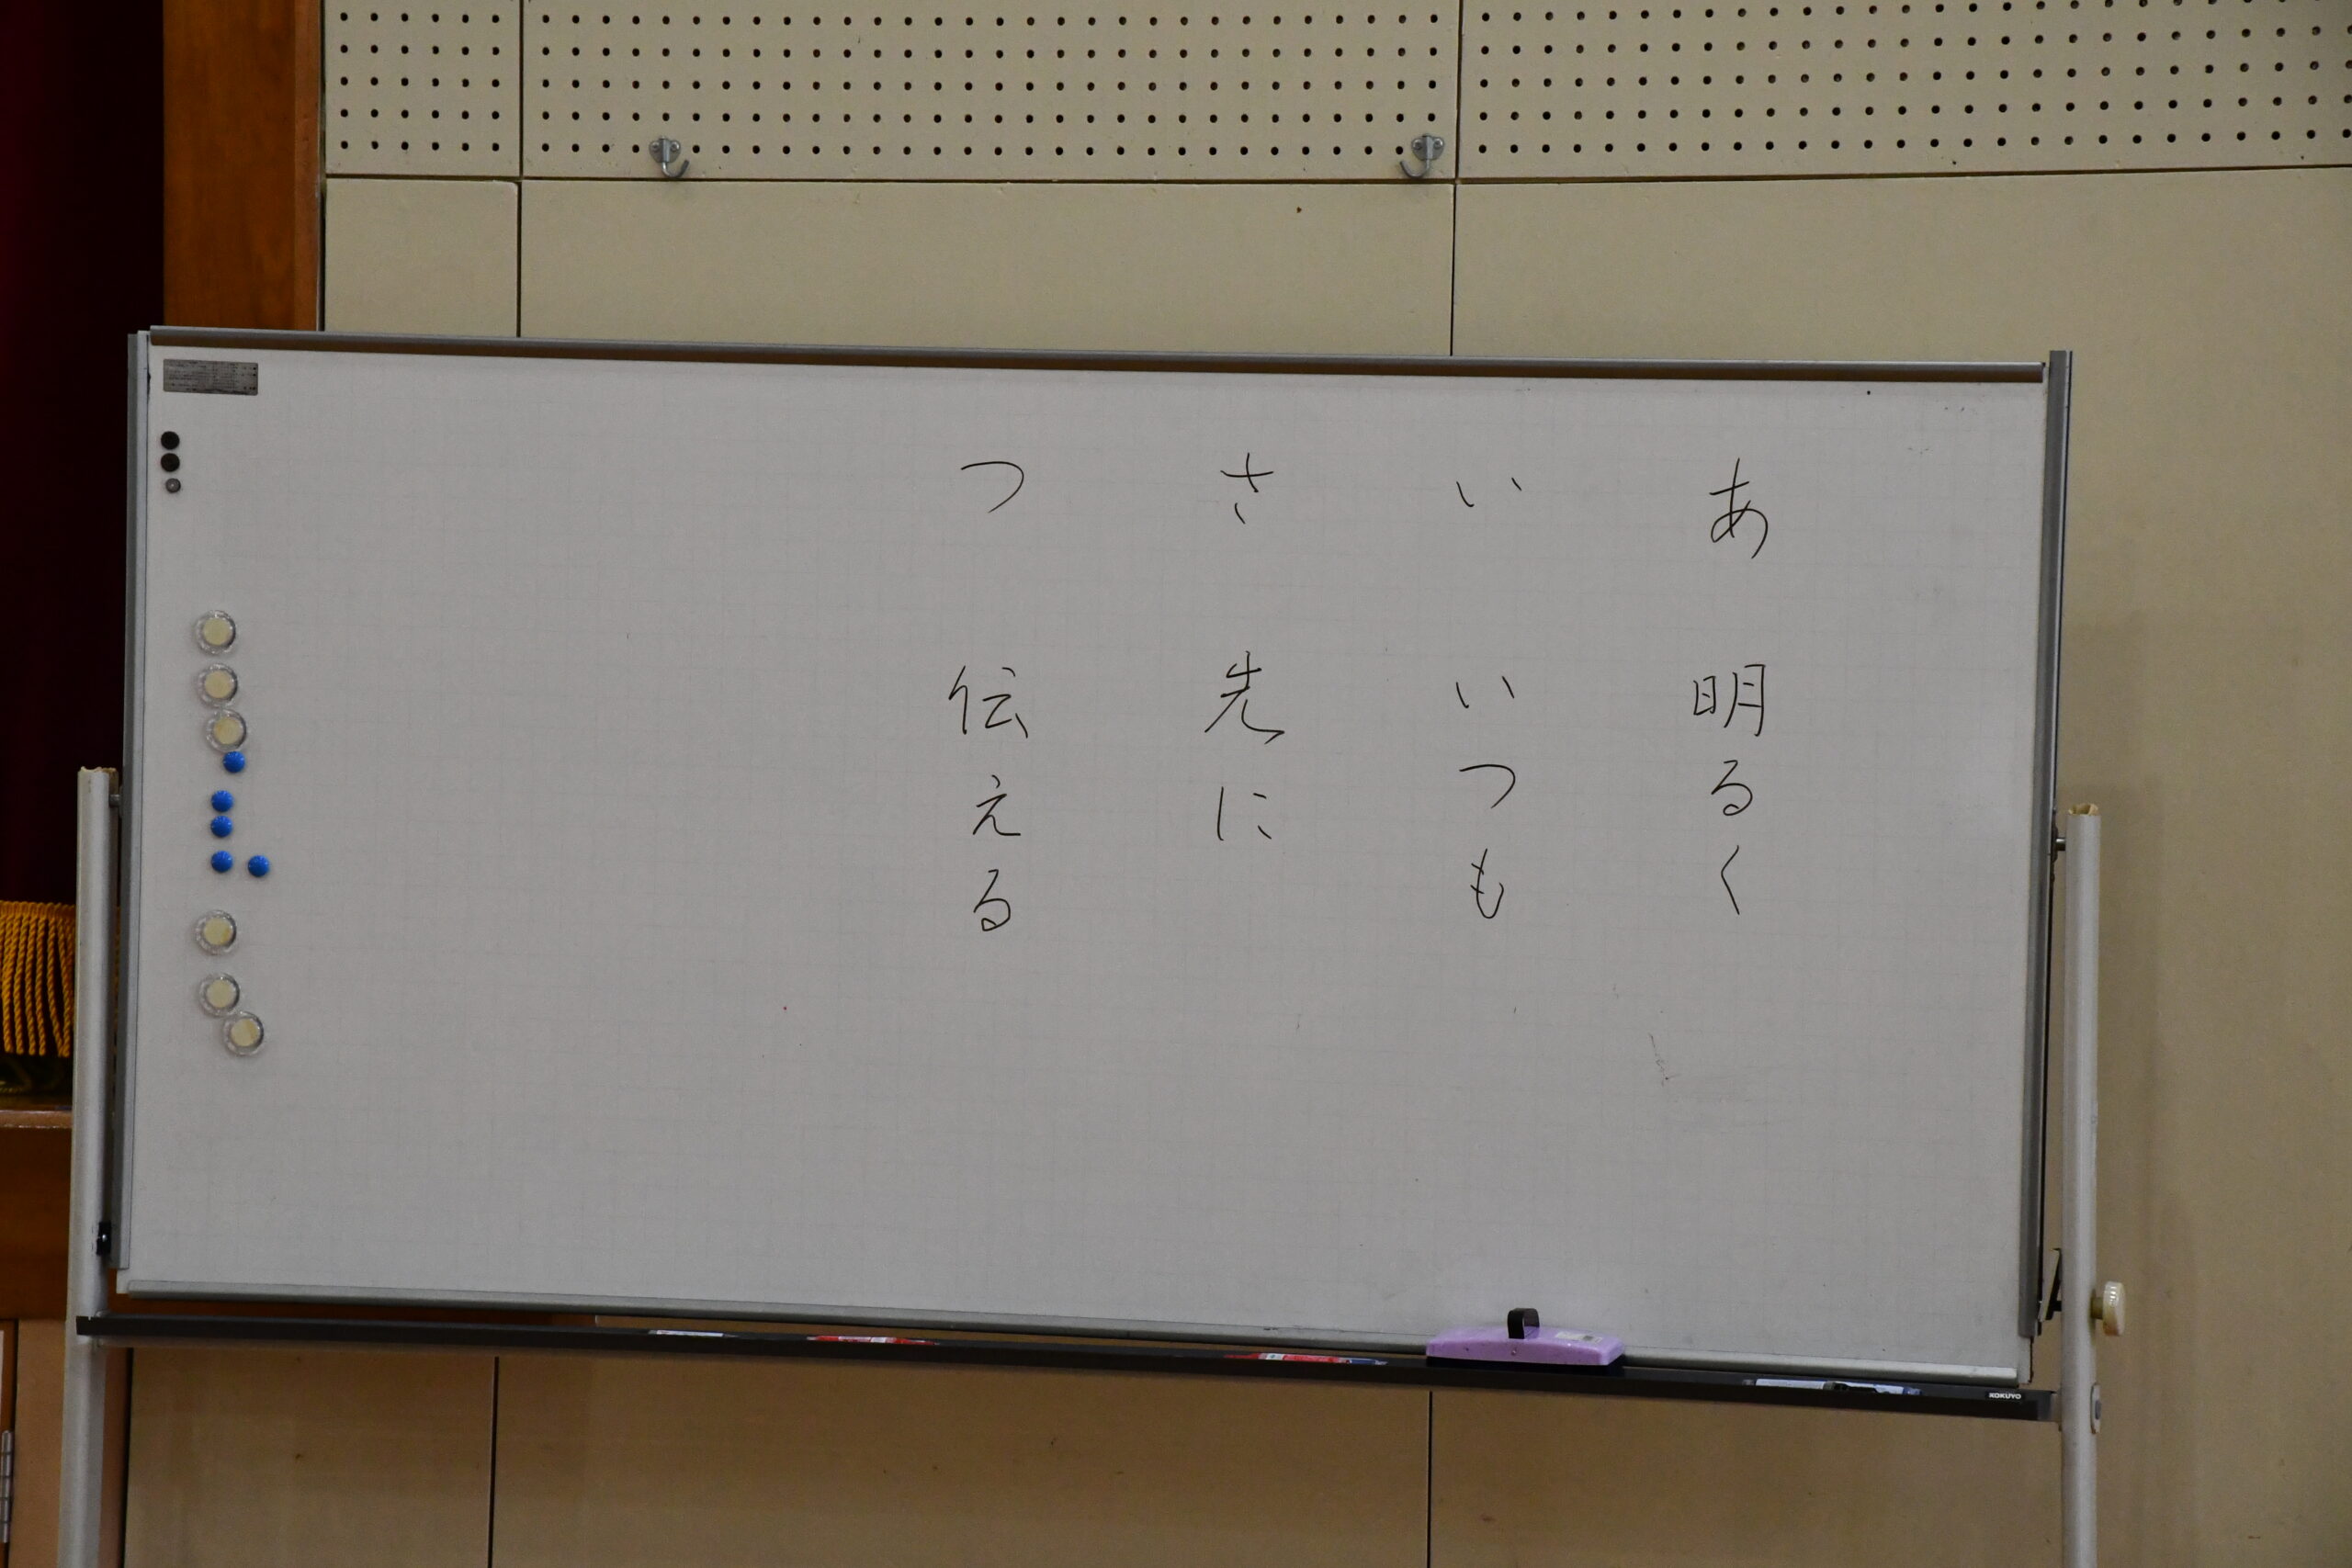 あ 明るく
い いつも
さ 先に
つ 伝える
KOKUYO